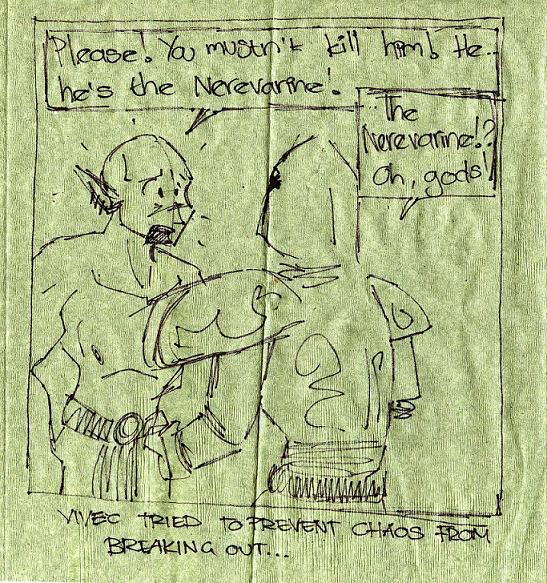 Please! You mustn't kill him! He..
he's the Nerevarine!
The
Nerevarine!?
Oh, gods!
VIVEC TRIED TO PREVENT CHAOS FROM
BREAKING OUT...